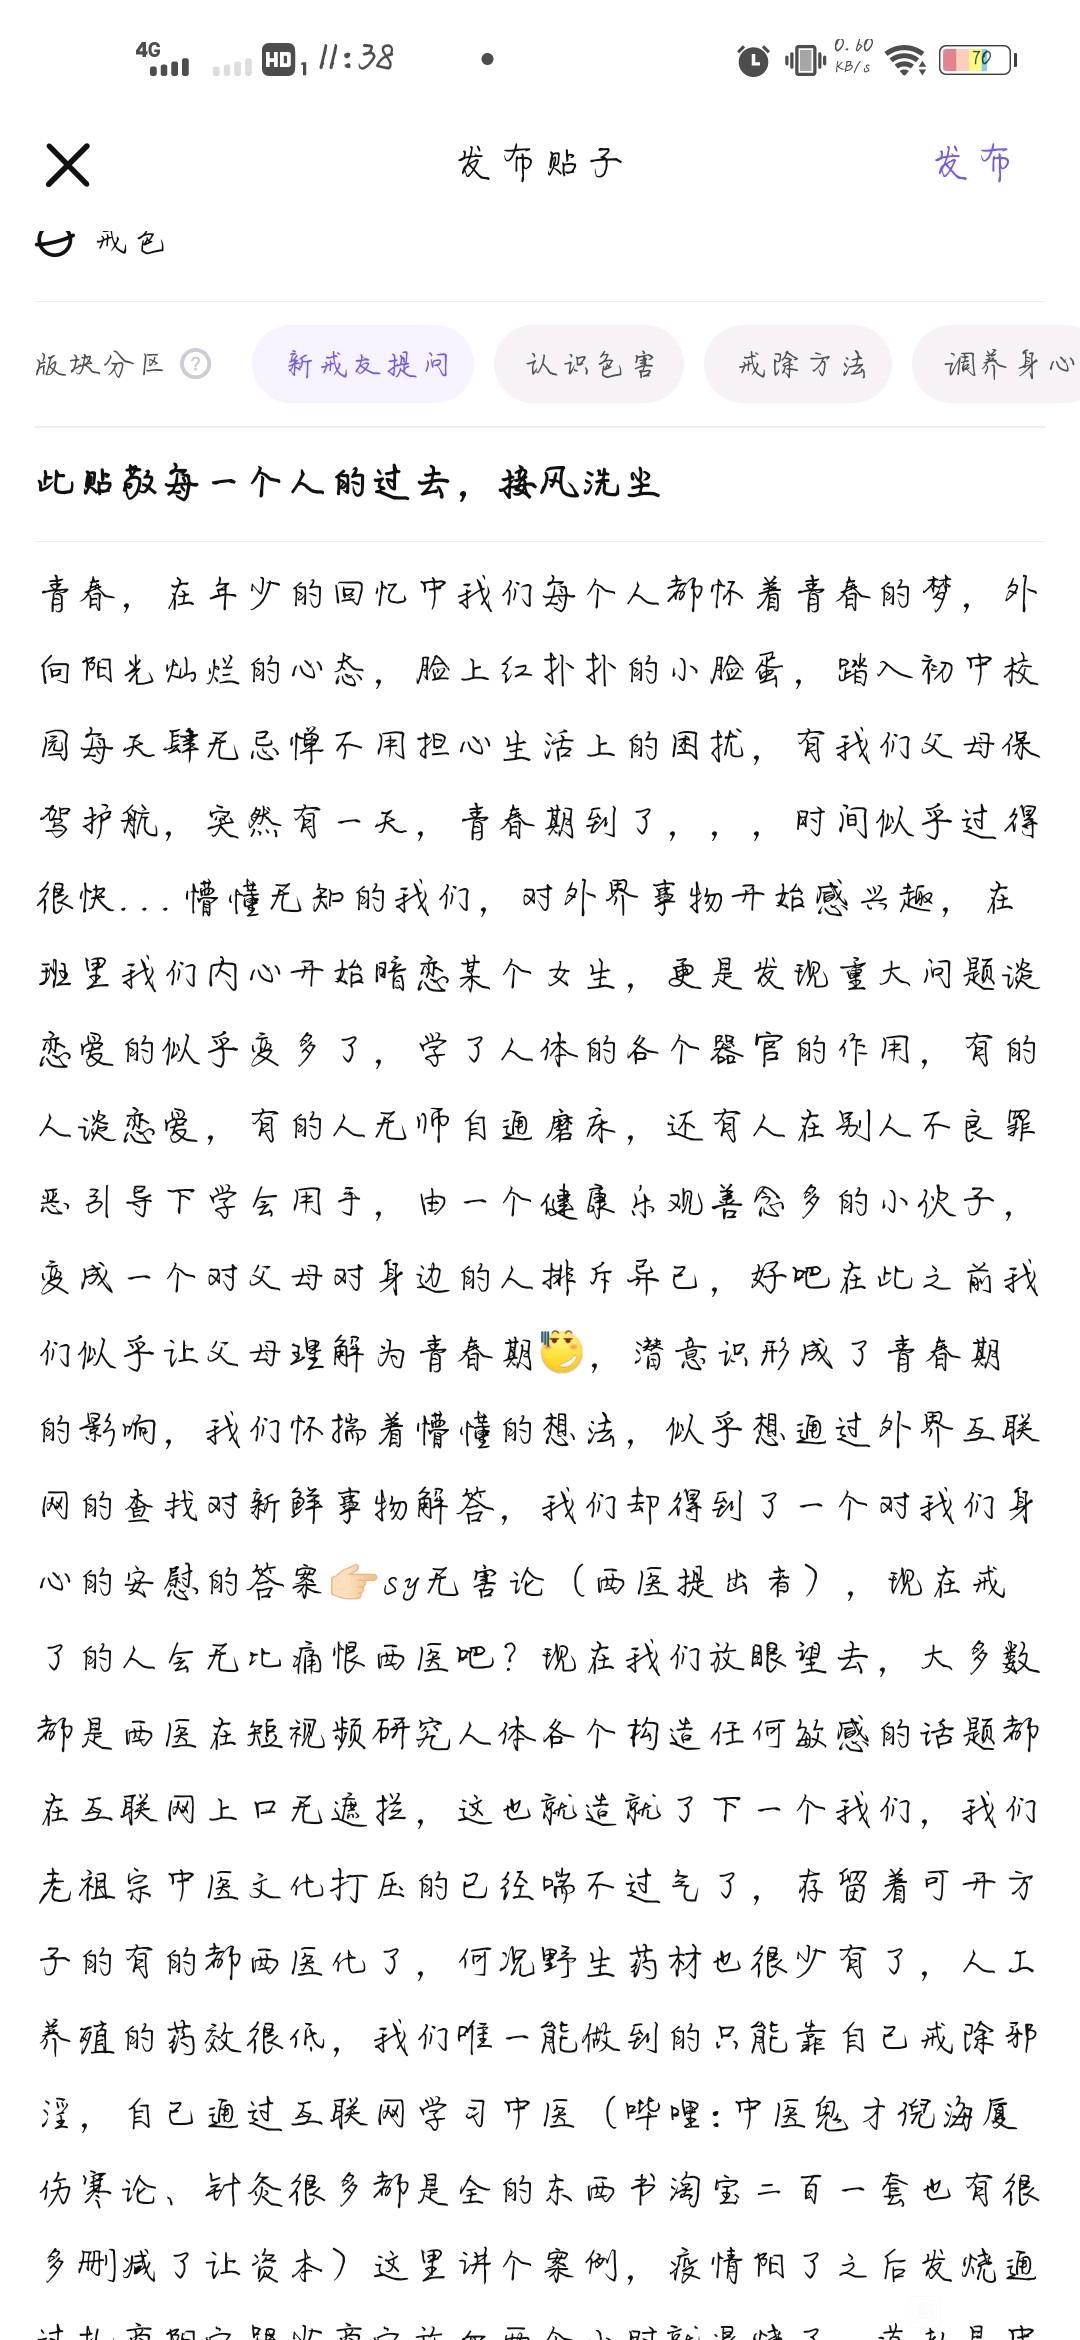 4G HD 1 11:38 0.60 KB/s 70
发布贴子 发布
戒色
版块分区 ? 新戒友提问 认识色害 戒除方法 调养身心
此贴敬每一个人的过去，接风洗尘
青春，在年少的回忆中我们每个人都怀着青春的梦，外
向阳光灿烂的心态，脸上红扑扑的小脸蛋，踏入初中校
园每天肆无忌惮不用担心生活上的困扰，有我们父母保
驾护航，突然有一天，青春期到了，，，时间似乎过得
很快...懵懂无知的我们，对外界事物开始感兴趣，在
班里我们内心开始暗恋某个女生，更是发现重大问题谈
恋爱的似乎变多了，学了人体的各个器官的作用，有的
人谈恋爱，有的人无师自通磨床，还有人在别人不良罪
恶引导下学会用手，由一个健康乐观善念多的小伙子，
变成一个对父母对身边的人排斥异己，好吧在此之前我
们似乎让父母理解为青春期，潜意识形成了青春期
的影响，我们怀揣着懵懂的想法，似乎想通过外界互联
网的查找对新鲜事物解答，我们却得到了一个对我们身
心的安慰的答案👉🏻sy无害论（西医提出者），现在戒
了的人会无比痛恨西医吧？现在我们放眼望去，大多数
都是西医在短视频研究人体各个构造任何敏感的话题都
在互联网上口无遮拦，这也就造就了下一个我们，我们
老祖宗中医文化打压的已经喘不过气了，存留着可开方
子的有的都西医化了，何况野生药材也很少有了，人工
养殖的药效很低，我们唯一能做到的只能靠自己戒除邪
淫，自己通过互联网学习中医（哔哩：中医鬼才倪海厦
伤寒论、针灸很多都是全的东西书淘宝二百一套也有很
多删减了让资本）这里讲个案例，疫情阳了之后发烧通